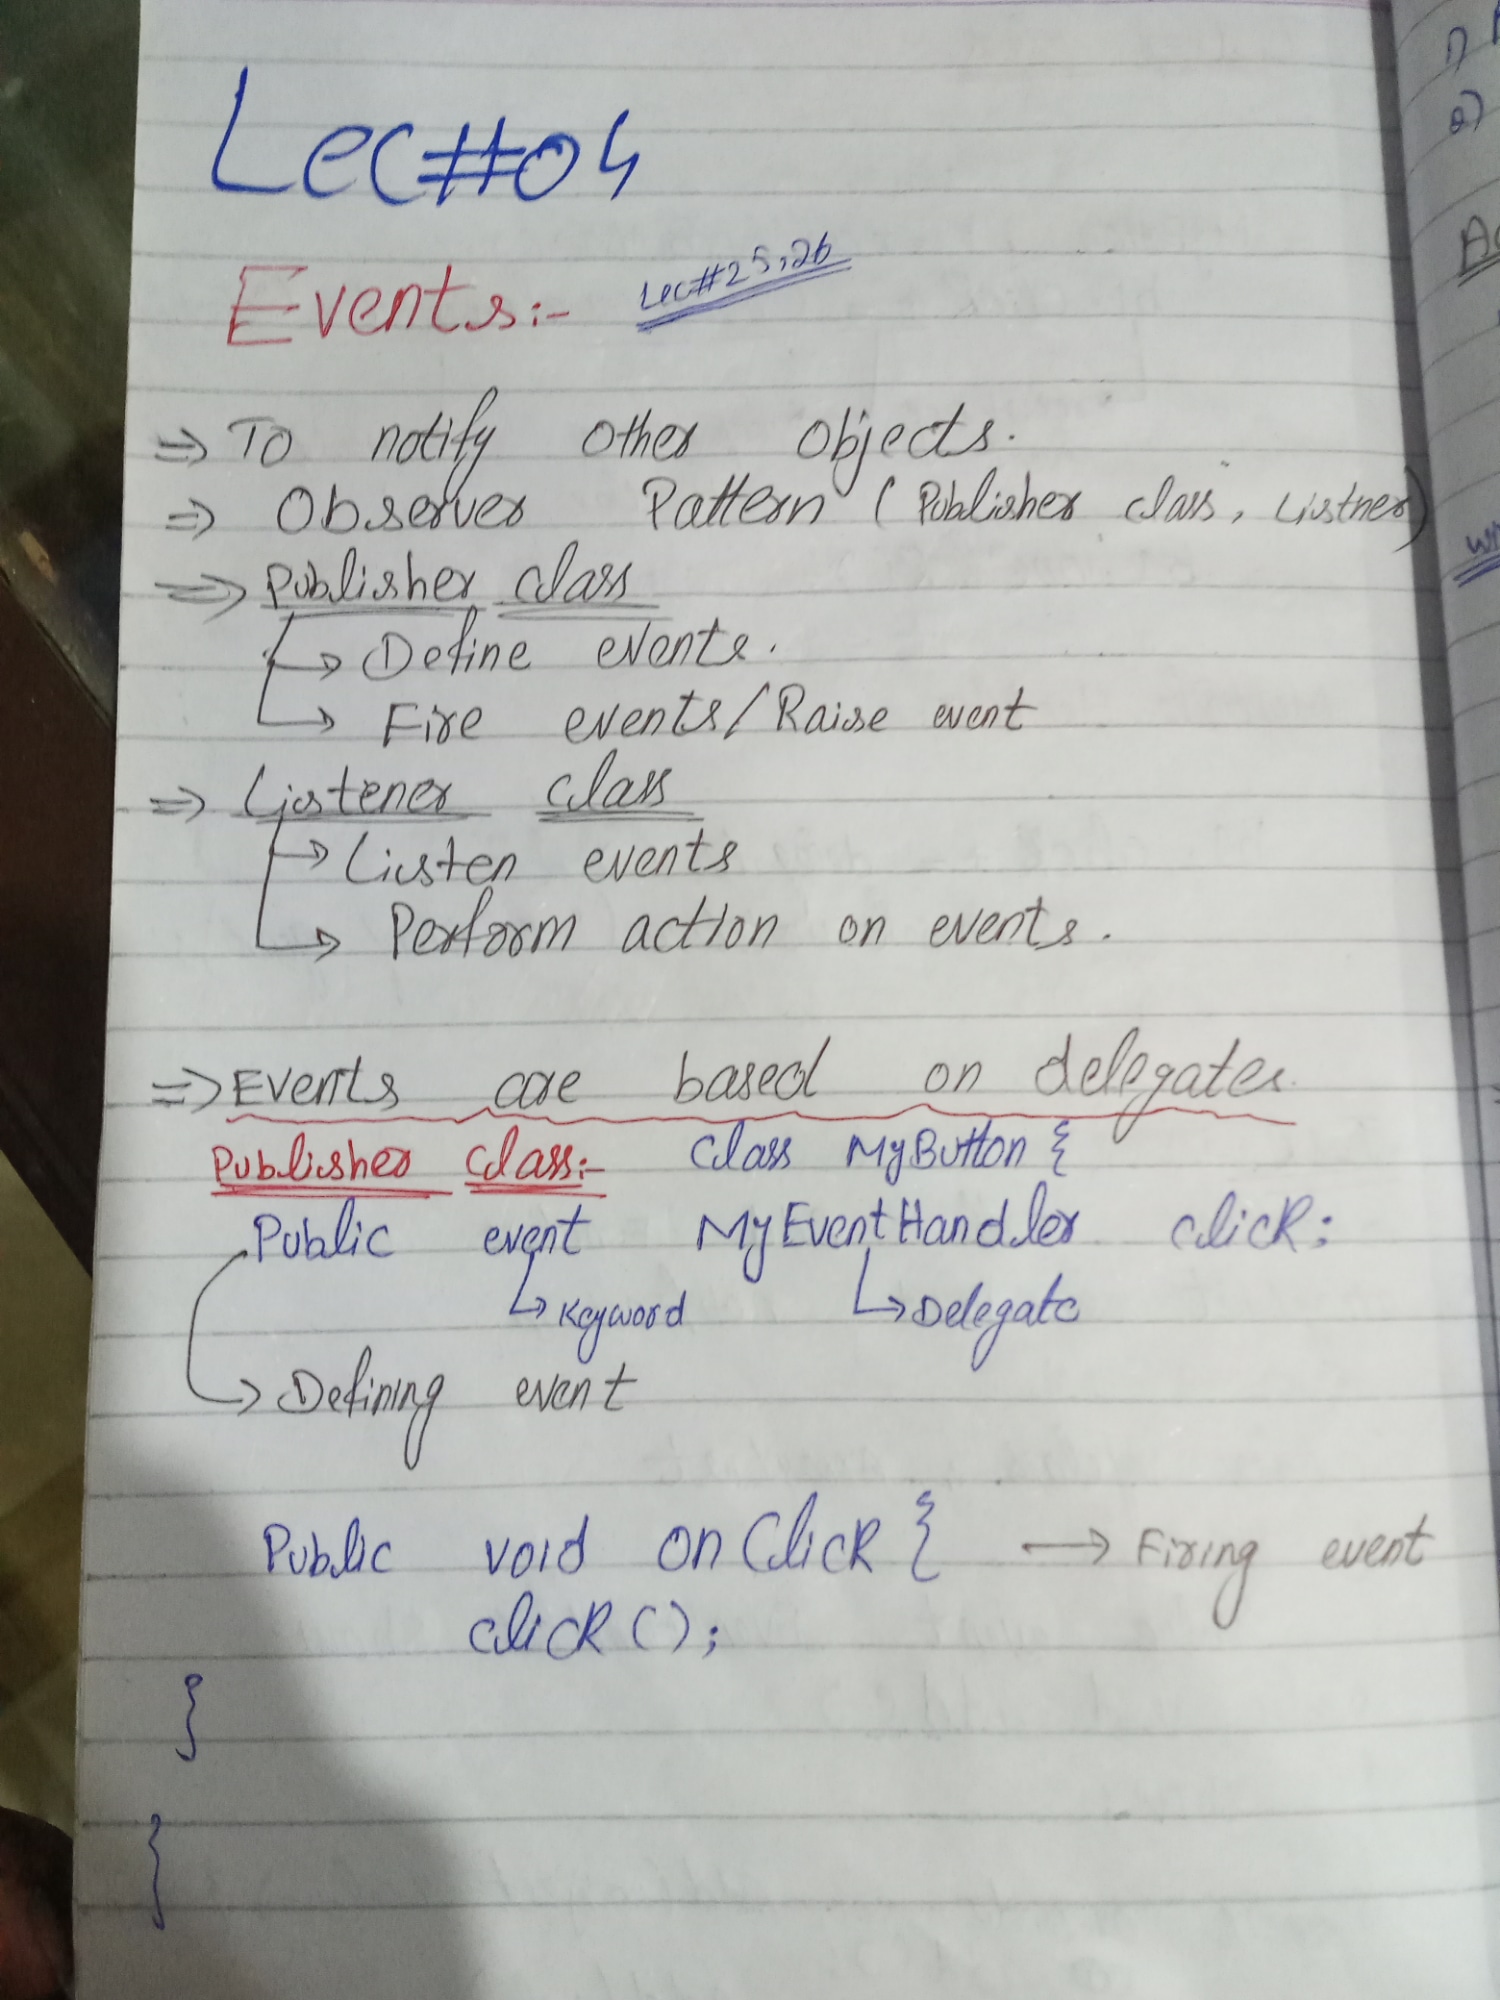 Lec#04
Events:-
Lec#25,26
=> To notify other objects.
=> Observer Pattern ( Publisher class, Listner)
=> Publisher class
-> Define events.
-> Fire events/Raise event
=> Listener class
-> Listen events
-> Perform action on events.
=> Events are based on delegates.
Publisher class:- Class MyButton {
Public event MyEventHandler click;
-> Keyword -> Delegate
-> Defining event
Public void onClick { -> Firing event
click ();
}
}